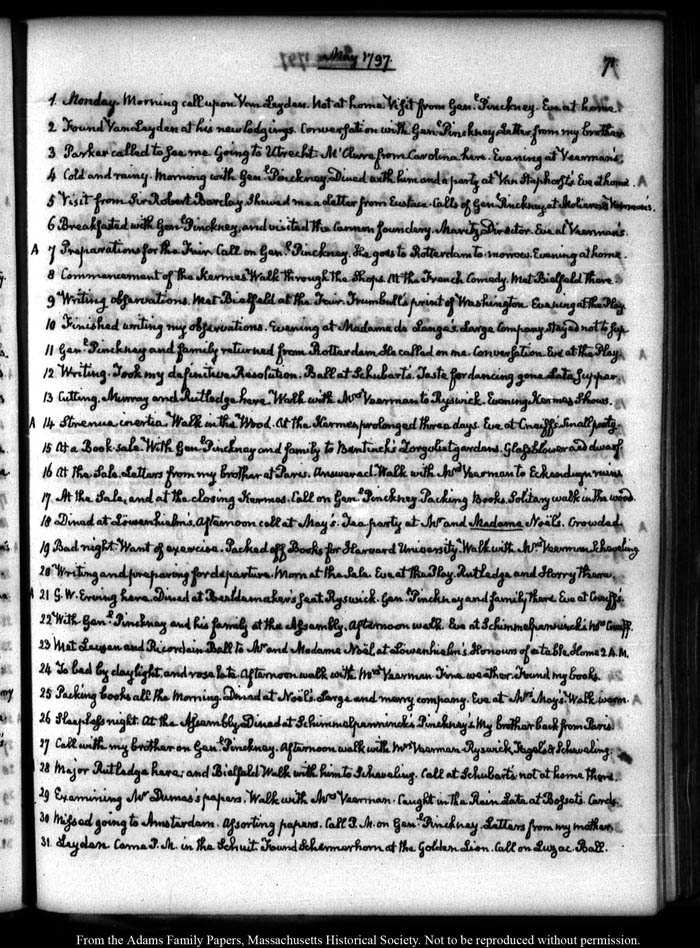 May 1797.
1 Monday. Morning call upon Van Leyden. Not at home. Visit from Genl. Pinckney. Eve at home.
2 Found Van Leyden at his new lodgings. Conversation with Genl. Pinckney. Letter from my brother
3 Parker called to see me. Going to Utrecht. McClure from Carolina here. Evening at Veerman's.
4 Cold and rainy. Morning with Genl. Pinckney. Dined with him and a party at Van Staphorst's. Eve at home. A
5 Visit from Sir Robert Barclay. Shewed me a Letter from Eustace. Calls of Gen. Pinckney, at Veerman's.
6 Breakfasted with Genl. Pinckney, and visited the Cannon foundery. Maritz Director. Eve at Veerman's.
A 7 Preparations for the Fair. Call on Genl. Pinckney. He goes to Rotterdam to-morrow. Evening at home.
8 Commencement of the Kermes. Walk through the Shops. At the French Comedy. Met Bielfeld there.
9 Writing observations. Met Bielfeld at the Fair. Trumbull's print of Washington. Evening at the Play
10 Finished writing my observations. Evening at Madame de Lange's. Large Company. Stayed not to sup.
11 Genl. Pinckney and family returned from Rotterdam. He called on me. Conversation. Eve at the Play.
12 Writing. Took my definitive Resolution. Ball at Schubart's. Taste for dancing gone. Late Supper.
13 Cutting, Murray and Rutledge here. Walk with Mrs. Veerman to Ryswick. Evening Kermes Shows.
A 14 Strenua inertia. Walk in the Wood. At the Kermes prolonged three days. Eve at Cneiff's. Small party.
15 At a Book sale. With Genl. Pinckney and family to Bentinck's Zorgvliet gardens. Glassblower and dwarf.
16 At the Sale. Letters from my brother at Paris. Answered. Walk with Mrs. Veerman to Eckenduyn ruins
17 At the Sale, and at the closing Kermes. Call on Genl. Pinckney. Packing Books. Solitary walk in the wood.
18 Dined at Lowenhielm's. Afternoon call at May's. Tea party at Mr. and Madame Noël's. Crowded.
19 Bad night. Want of exercise. Packed off Books for Harvard University. Walk with Mrs. Veerman. Scheveling
20 Writing and preparing for departure. Morn at the Sale. Eve at the Play. Rutledge and Horry there.
A 21 G. W. Erving here. Dined at Beeldemaker's seat Ryswick. Gen. Pinckney and family there. Eve at Cneiff's.
22 With Genl. Pinckney and his family at the Assembly. Afternoon walk. Eve at Schimmelpenninck's. Mrs. Cneiff.
23 Met and Ricord in Ball to Mr. and Madame Noël at Lowenhielm's. Honours of a table. Home 2 A.M.
24 To bed by daylight, and rose late. Afternoon walk with Mrs. Veerman. Fine weather. Found my books.
25 Packing books all the Morning. Dined at Noël's. Large and merry company. Eve at Mrs. May's. Walk warm.
26 Sleepless night. At the Assembly. Dined at Schimmelpenninck's. Pinckney's. My brother back from Paris
27 Call with my brother on Genl. Pinckney. Afternoon walk with Mrs. Veerman Ryswick, & Scheveling.
28 Major Rutledge here; and Bielfeld. Walk with him to Scheveling. Call at Schubart's not at home there.
29 Examining Mr. Dumas's papers. Walk with Mrs. Veerman. Caught in the Rain. Late at Bosset's. Cards.
30 Missed going to Amsterdam. Assorting papers. Call P.M. on Gen. Pinckney. Letters from my mother.
31. Leyden. Came P.M. in the Schuit. Found Schermerhorn at the Golden Lion. Call on Luzac. Ball.
From the Adams Family Papers, Massachusetts Historical Society. Not to be reproduced without permission.